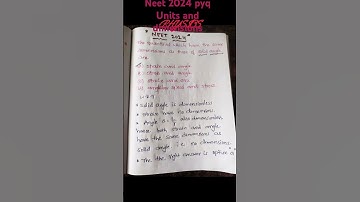 Neet 2024 pyq
Units and
dimensions
NEET 2024
The quantities which have the same
dimensions as that of solid angle
are
strain and angle
stress and angle
angular speed and stress
Solid angle is dimensionless
strain has no dimensions.
Angle also dimensionless
hence both strain and angle
have the same dimensions as
solid angle i.e. no dimensions
The right answer is option